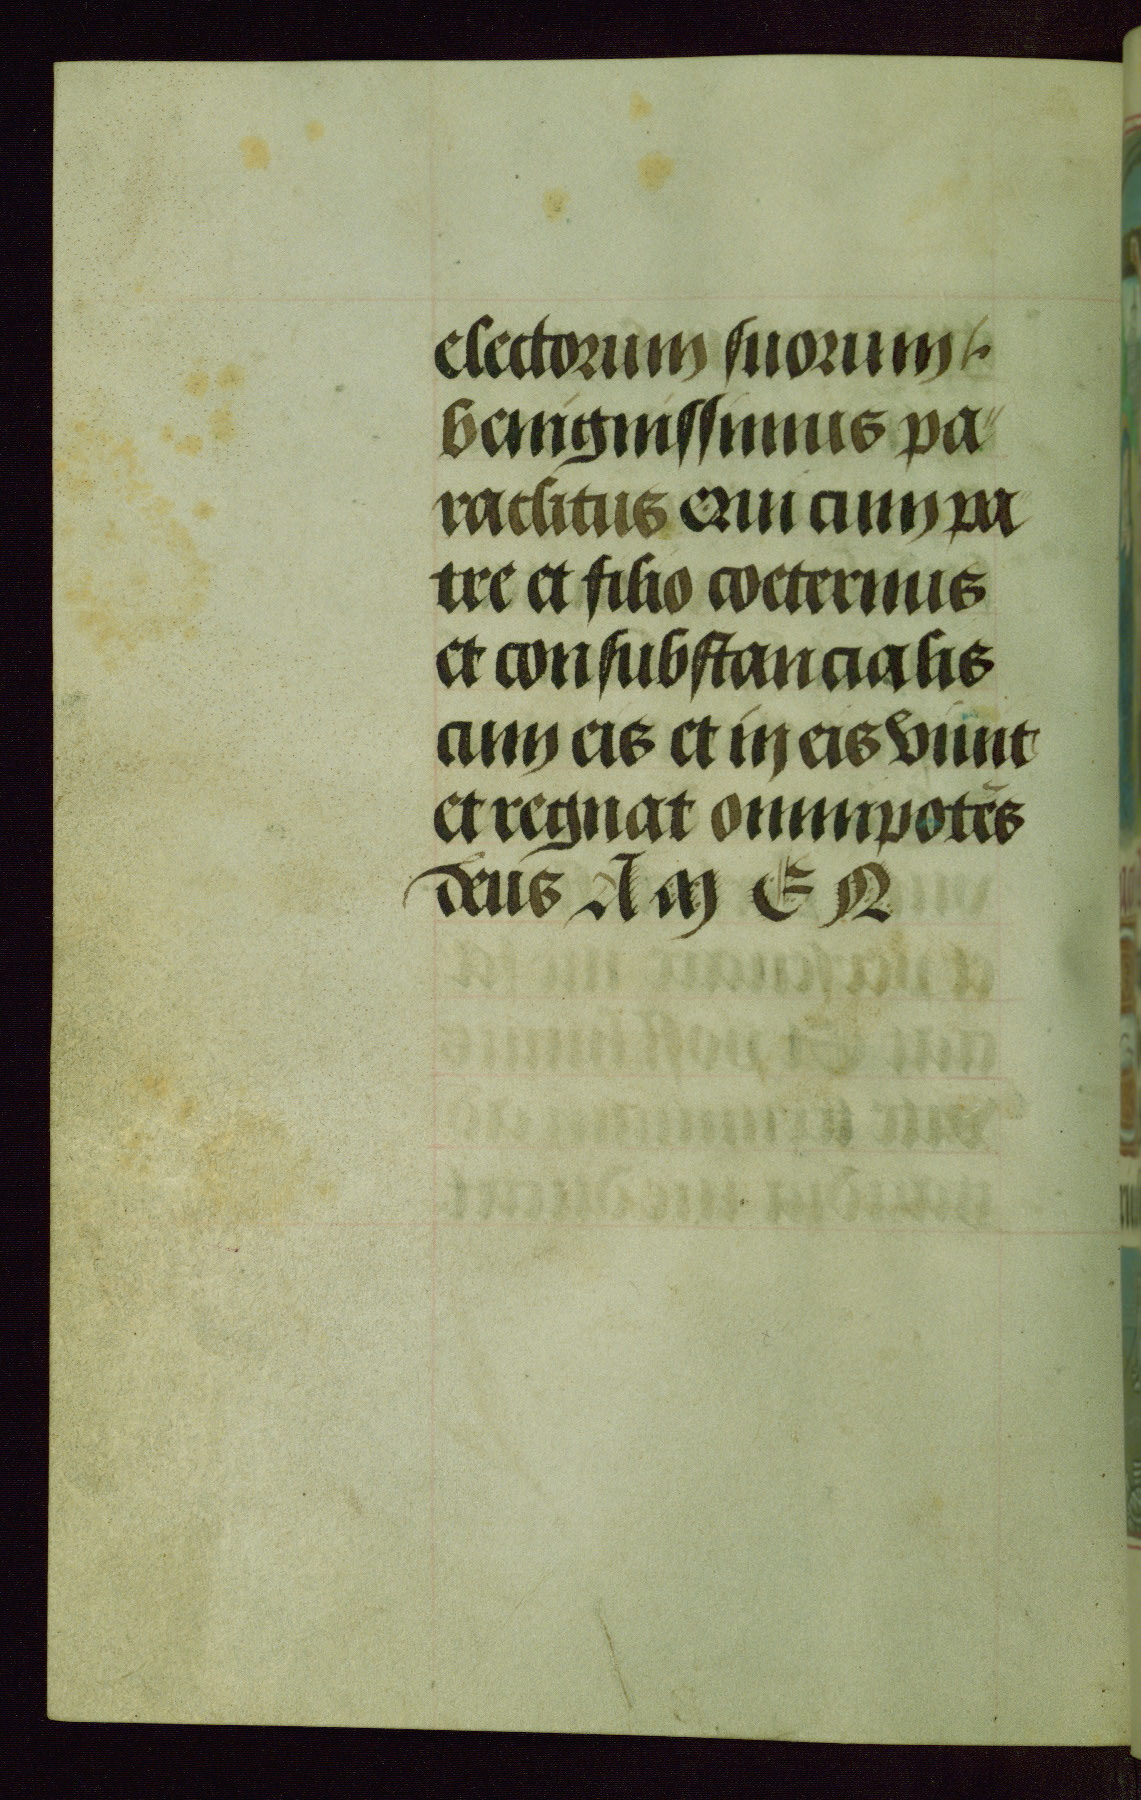 electorum suorum
benignissimus pa
raclitus Qui cum pa
tre et filio coeternus
et consubstancialis
cum eis et in eis viuit
et regnat omnipotẽs
deus A m E N